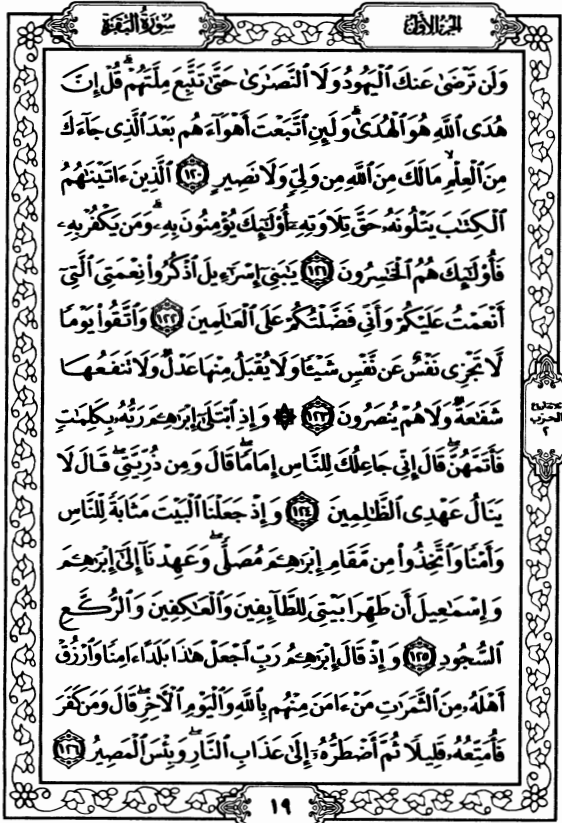 سورة البقرة
الجزء الأول
وَلَن تَرْضَىٰ عَنكَ الْيَهُودُ وَلَا النَّصَارَىٰ حَتَّىٰ تَتَّبِعَ مِلَّتَهُمْ ۗ قُلْ إِنَّ
هُدَى اللَّهِ هُوَ الْهُدَىٰ ۗ وَلَئِنِ اتَّبَعْتَ أَهْوَاءَهُم بَعْدَ الَّذِي جَاءَكَ
مِنَ الْعِلْمِ ۙ مَا لَكَ مِنَ اللَّهِ مِن وَلِيٍّ وَلَا نَصِيرٍ ١٢٠ الَّذِينَ ءَاتَيْنَٰهُمُ
الْكِتَٰبَ يَتْلُونَهُۥ حَقَّ تِلَاوَتِهِۦٓ أُوْلَٰٓئِكَ يُؤْمِنُونَ بِهِۦ ۗ وَمَن يَكْفُرْ بِهِۦ
فَأُوْلَٰٓئِكَ هُمُ الْخَٰسِرُونَ ١٢١ يَٰبَنِيٓ إِسْرَٰٓءِيلَ اذْكُرُوا۟ نِعْمَتِيَ الَّتِيٓ
أَنْعَمْتُ عَلَيْكُمْ وَأَنِّي فَضَّلْتُكُمْ عَلَى الْعَٰلَمِينَ ١٢٢ وَاتَّقُوا۟ يَوْمًا
لَّا تَجْزِي نَفْسٌ عَن نَّفْسٍ شَيْـًٔا وَلَا يُقْبَلُ مِنْهَا عَدْلٌ وَلَا تَنفَعُهَا
شَفَٰعَةٌ وَلَا هُمْ يُنصَرُونَ ١٢٣ ۞ وَإِذِ ابْتَلَىٰٓ إِبْرَٰهِـۧمَ رَبُّهُۥ بِكَلِمَٰتٍ
فَأَتَمَّهُنَّ ۖ قَالَ إِنِّي جَاعِلُكَ لِلنَّاسِ إِمَامًا ۖ قَالَ وَمِن ذُرِّيَّتِي ۖ قَالَ لَا
يَنَالُ عَهْدِي الظَّٰلِمِينَ ١٢٤ وَإِذْ جَعَلْنَا الْبَيْتَ مَثَابَةً لِّلنَّاسِ
وَأَمْنًا وَاتَّخِذُوا۟ مِن مَّقَامِ إِبْرَٰهِـۧمَ مُصَلًّى ۖ وَعَهِدْنَآ إِلَىٰٓ إِبْرَٰهِـۧمَ
وَإِسْمَٰعِيلَ أَن طَهِّرَا بَيْتِيَ لِلطَّآئِفِينَ وَالْعَٰكِفِينَ وَالرُّكَّعِ
السُّجُودِ ١٢٥ وَإِذْ قَالَ إِبْرَٰهِـۧمُ رَبِّ اجْعَلْ هَٰذَا بَلَدًا ءَامِنًا وَارْزُقْ
أَهْلَهُۥ مِنَ الثَّمَرَٰتِ مَنْ ءَامَنَ مِنْهُم بِاللَّهِ وَالْيَوْمِ الْءَاخِرِ ۖ قَالَ وَمَن كَفَرَ
فَأُمَتِّعُهُۥ قَلِيلًا ثُمَّ أَضْطَرُّهُۥٓ إِلَىٰ عَذَابِ النَّارِ ۖ وَبِئْسَ الْمَصِيرُ ١٢٦
الحزب
٢
١٩